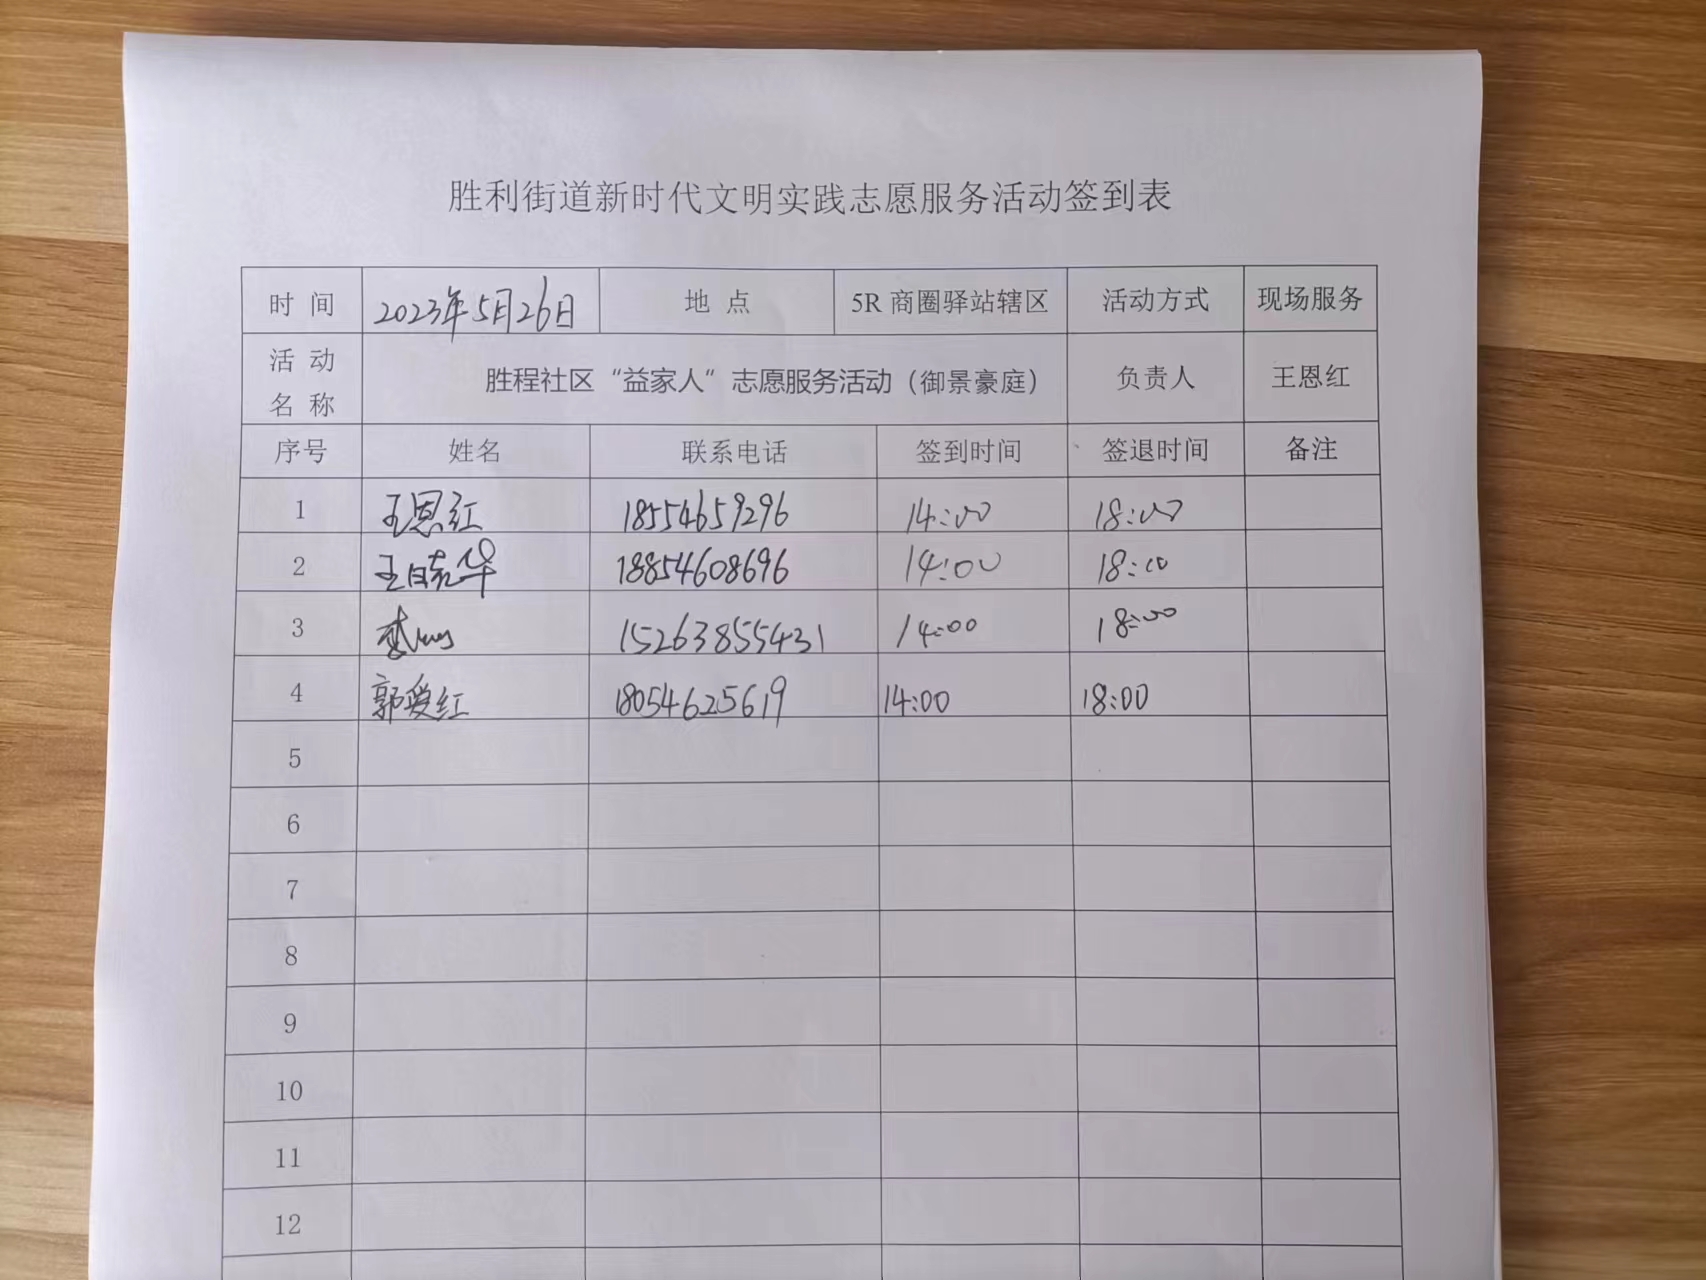 胜利街道新时代文明实践志愿服务活动签到表
时 间 2023年5月26日 地 点 5R 商圈驿站辖区 活动方式 现场服务
活 动
名 称 胜程社区“益家人”志愿服务活动（御景豪庭） 负责人 王恩红
序号 姓名 联系电话 签到时间 签退时间 备注
1 王恩红 18554659296 14:00 18:00
2 王晓华 18854608696 14:00 18:00
3 15263855431 14:00 18:00
4 郭爱红 18054625619 14:00 18:00
5
6
7
8
9
10
11
12